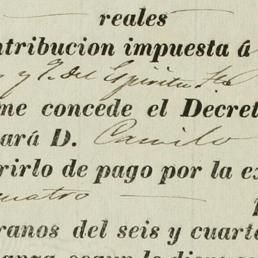 reales
ntribucion impuesta á
y P. del Espíritu
me concede el Decret
ará D. Camilo
rirlo de pago por la e
cuatro
ranos del seis y cuart
anza segun lo dispue